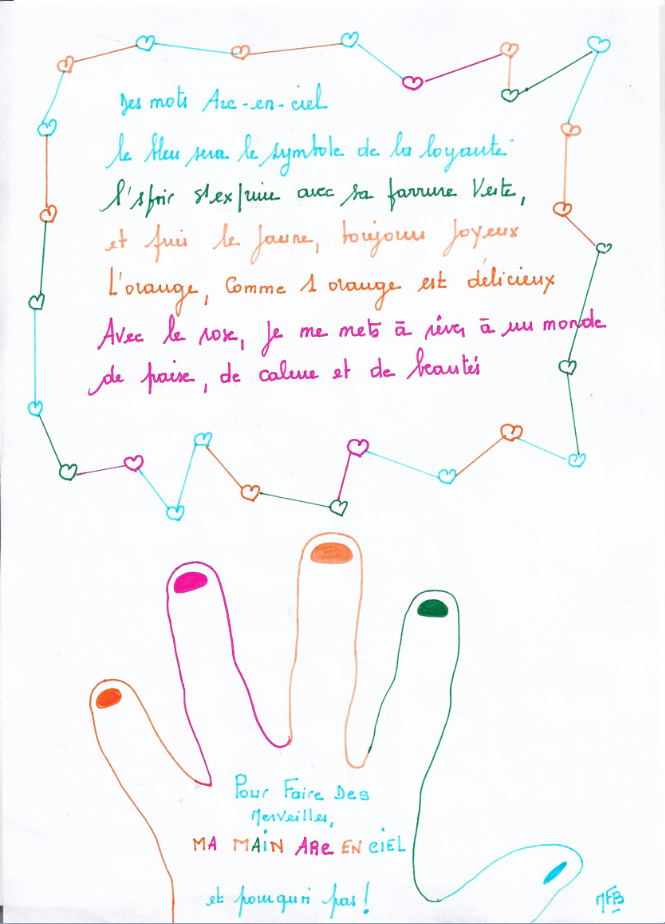 Des mots Arc-en-ciel
le bleu sera le symbole de la loyauté
l'espoir s'exprime avec sa parrure Verte,
et puis le Jaune, toujours Joyeux
L'orange, Comme 1 orange est délicieux
Avec le rose, je me mets à rêver à un monde
de paixe, de calme et de beautés
Pour Faire Des
Merveilles,
MA MAIN ARC EN CIEL
et pourquoi pas !
MFB